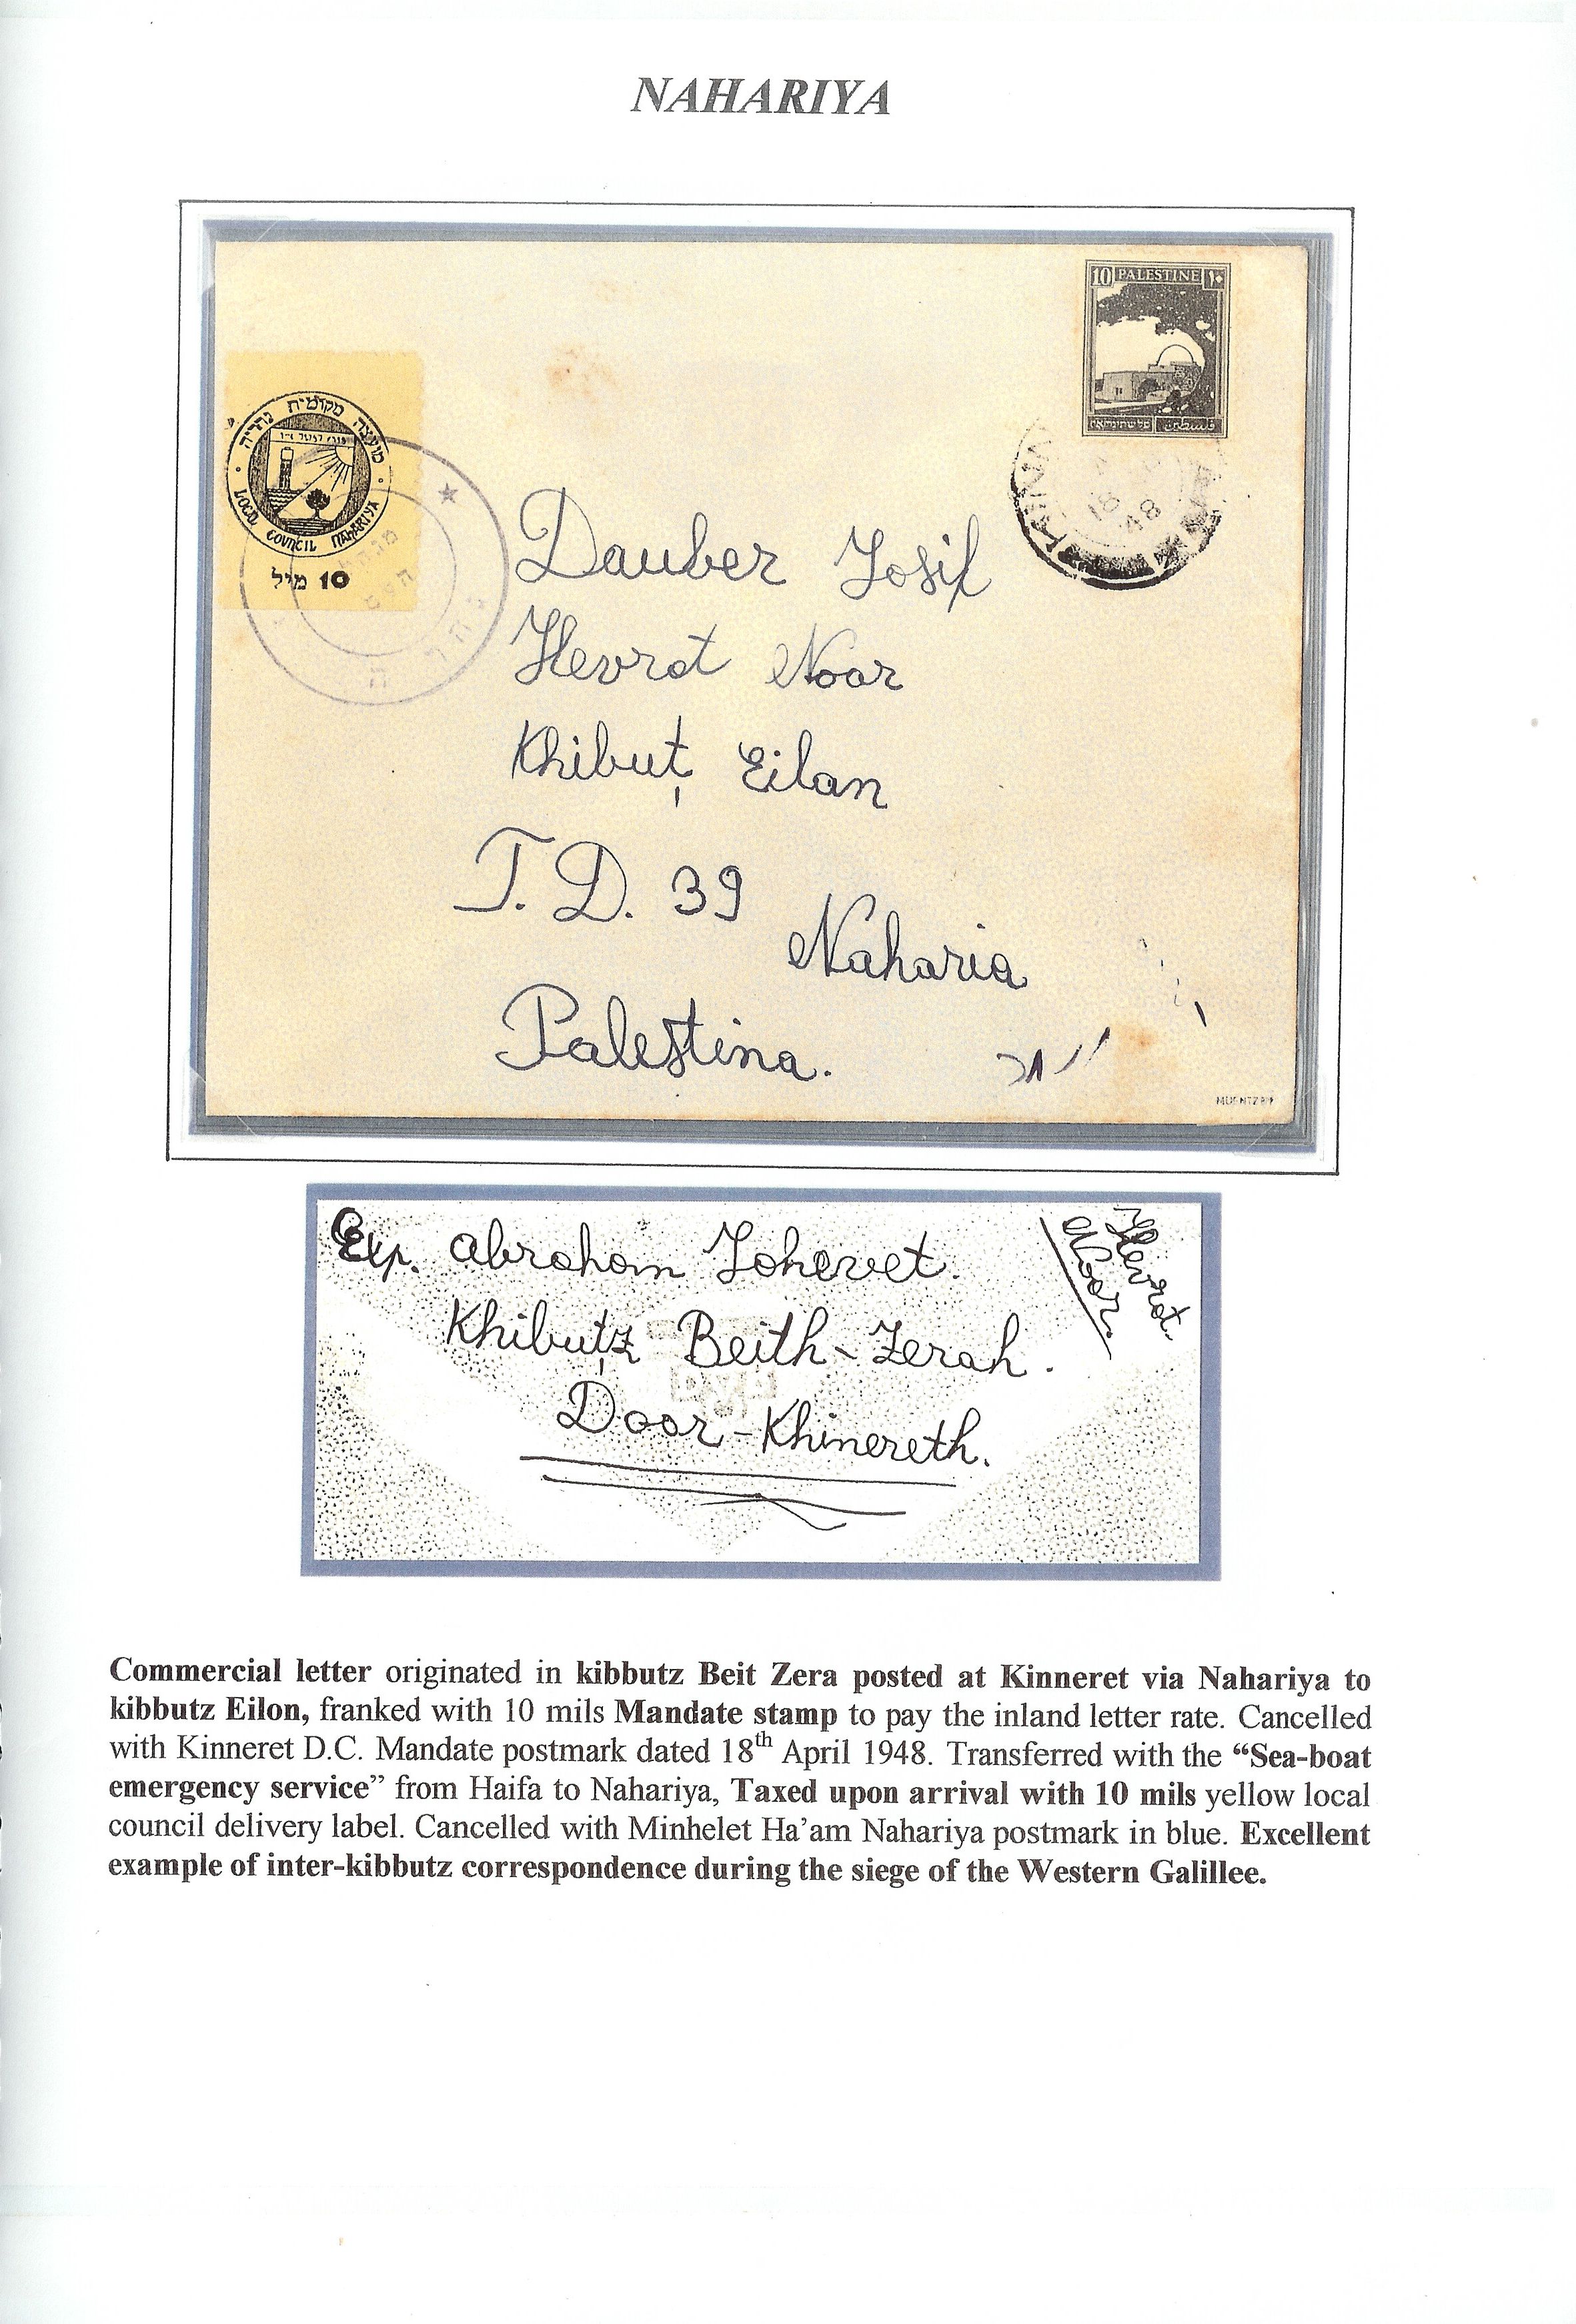 NAHARIYA
10 PALESTINE ١٠
فلسطين
מועצה מקומית נהריה
LOCAL COUNCIL NAHARIYA
10 מיל
18
48
Dauber Iosif
Hevrat Noar
Khibuț Eilan
T. D. 39
Naharia
Palestina.
Exp. Abraham Iohevet.
Khibuțz Beith-Zerah.
Door-Khinereth.
Hevrat
Noar.
Commercial letter originated in kibbutz Beit Zera posted at Kinneret via Nahariya to
kibbutz Eilon, franked with 10 mils Mandate stamp to pay the inland letter rate. Cancelled
with Kinneret D.C. Mandate postmark dated 18th April 1948. Transferred with the “Sea-boat
emergency service” from Haifa to Nahariya, Taxed upon arrival with 10 mils yellow local
council delivery label. Cancelled with Minhelet Ha’am Nahariya postmark in blue. Excellent
example of inter-kibbutz correspondence during the siege of the Western Galillee.